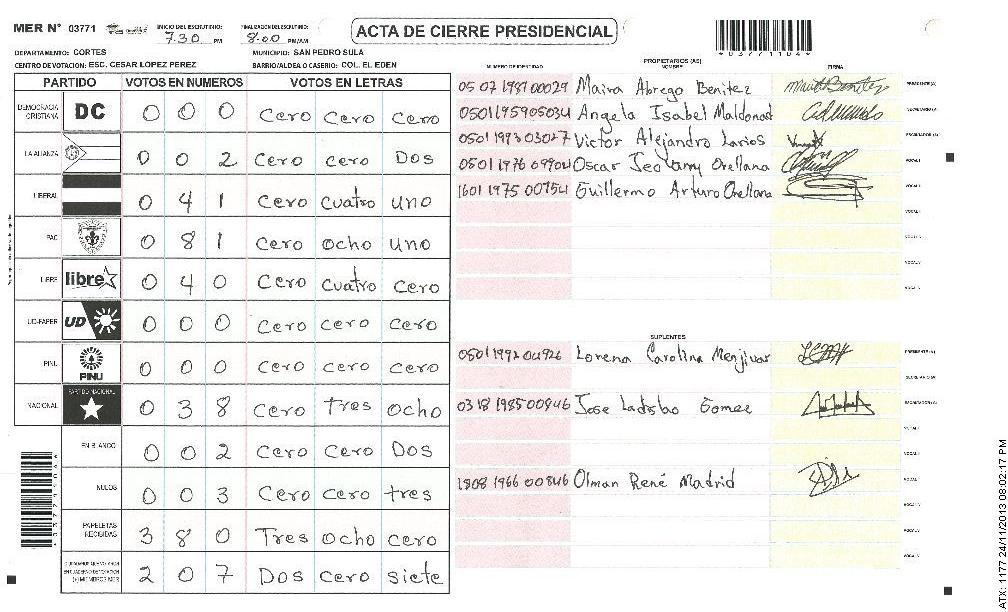 MER N° 03771
INICIO DEL ESCRUTINIO: 7:30 PM
FINALIZACION DEL ESCRUTINIO: 8:00 PM/AM
ACTA DE CIERRE PRESIDENCIAL
DEPARTAMENTO: CORTES
MUNICIPIO: SAN PEDRO SULA
CENTRO DE VOTACION: ESC. CESAR LOPEZ PEREZ
BARRIO/ALDEA O CASERIO: COL. EL EDEN
PARTIDO VOTOS EN NUMEROS VOTOS EN LETRAS
DEMOCRACIA CRISTIANA DC 0 0 0 Cero Cero Cero
LA ALIANZA 0 0 2 Cero cero Dos
LIBERAL 0 4 1 Cero Cuatro uno
PAC 0 8 1 Cero ocho uno
LIBRE libre 0 4 0 Cero Cuatro Cero
UD-FAPER UD 0 0 0 Cero Cero Cero
PINU PINU 0 0 0 Cero Cero Cero
NACIONAL PARTIDO NACIONAL 0 3 8 Cero Tres ocho
EN BLANCO 0 0 2 Cero Cero Dos
NULOS 0 0 3 Cero Cero tres
PAPELETAS RECIBIDAS 3 8 0 Tres ocho cero
2 0 7 Dos cero siete
NUMERO DE IDENTIDAD
PROPIETARIOS (AS)
NOMBRE
FIRMA
Maira Abrego Benitez PRESIDENTE(A)
Angela Isabel Maldonad SECRETARIO(A)
0501 1993 03027 Victor Alejandro Larios ESCRUTADOR(A)
Oscar Orellana VOCAL I
Guillermo Arturo Orellana
SUPLENTES
Lorena Carolina Menjivar PRESIDENTE(A)
SECRETARIO(A)
0318 1985 00846 Jose Ladislao Gomez ESCRUTADOR(A)
1808 1966 00846 Olman René Madrid
ATX: 1177 24/11/2013 08:02:17 PM